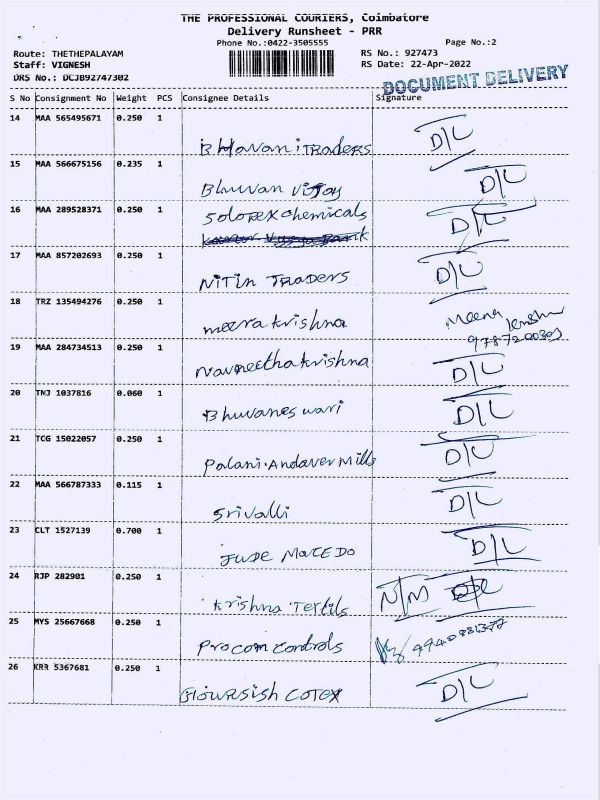 THE PROFESSIONAL COURIERS, Coimbatore
Delivery Runsheet - PRR
Phone No.:0422-3505555
Page No.:2
Route: THETHEPALAYAM
RS No.: 927473
Staff: VIGNESH
RS Date: 22-Apr-2022
DRS No.: DCJB92747302
DOCUMENT DELIVERY
S No Consignment No Weight PCS Consignee Details Signature
14 MAA 565495671 0.250 1 Bhavani TRADERS D/L
15 MAA 566675156 0.235 1 Bhuvan Vijay D/L
16 MAA 289528371 0.250 1 Solorex chemicals D/L
17 MAA 857202693 0.250 1 NITIN TRADERS D/L
18 TRZ 135494276 0.250 1 meera krishna Meena
19 MAA 284734513 0.250 1 Navneetha krishna D/L
20 TNJ 1037816 0.060 1 Bhuvaneswari D/L
21 TCG 15022057 0.250 1 Palani.Andaver Mills D/L
22 MAA 566787333 0.115 1 Srivalli D/L
23 CLT 1527139 0.700 1 JUDE MACEDO D/L
24 RJP 282901 0.250 1 Krishna Textils N/M
25 MYS 25667668 0.250 1 Procom controls
26 KRR 5367681 0.250 1 Flouresish COTEX D/L